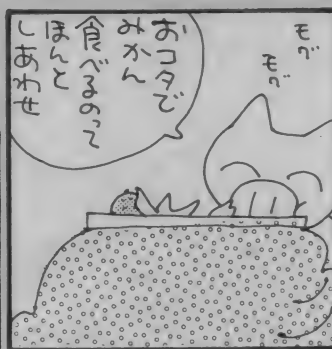 モグ
モグ
おコタで
みかん
食べるのって
ほんと
しあわせ